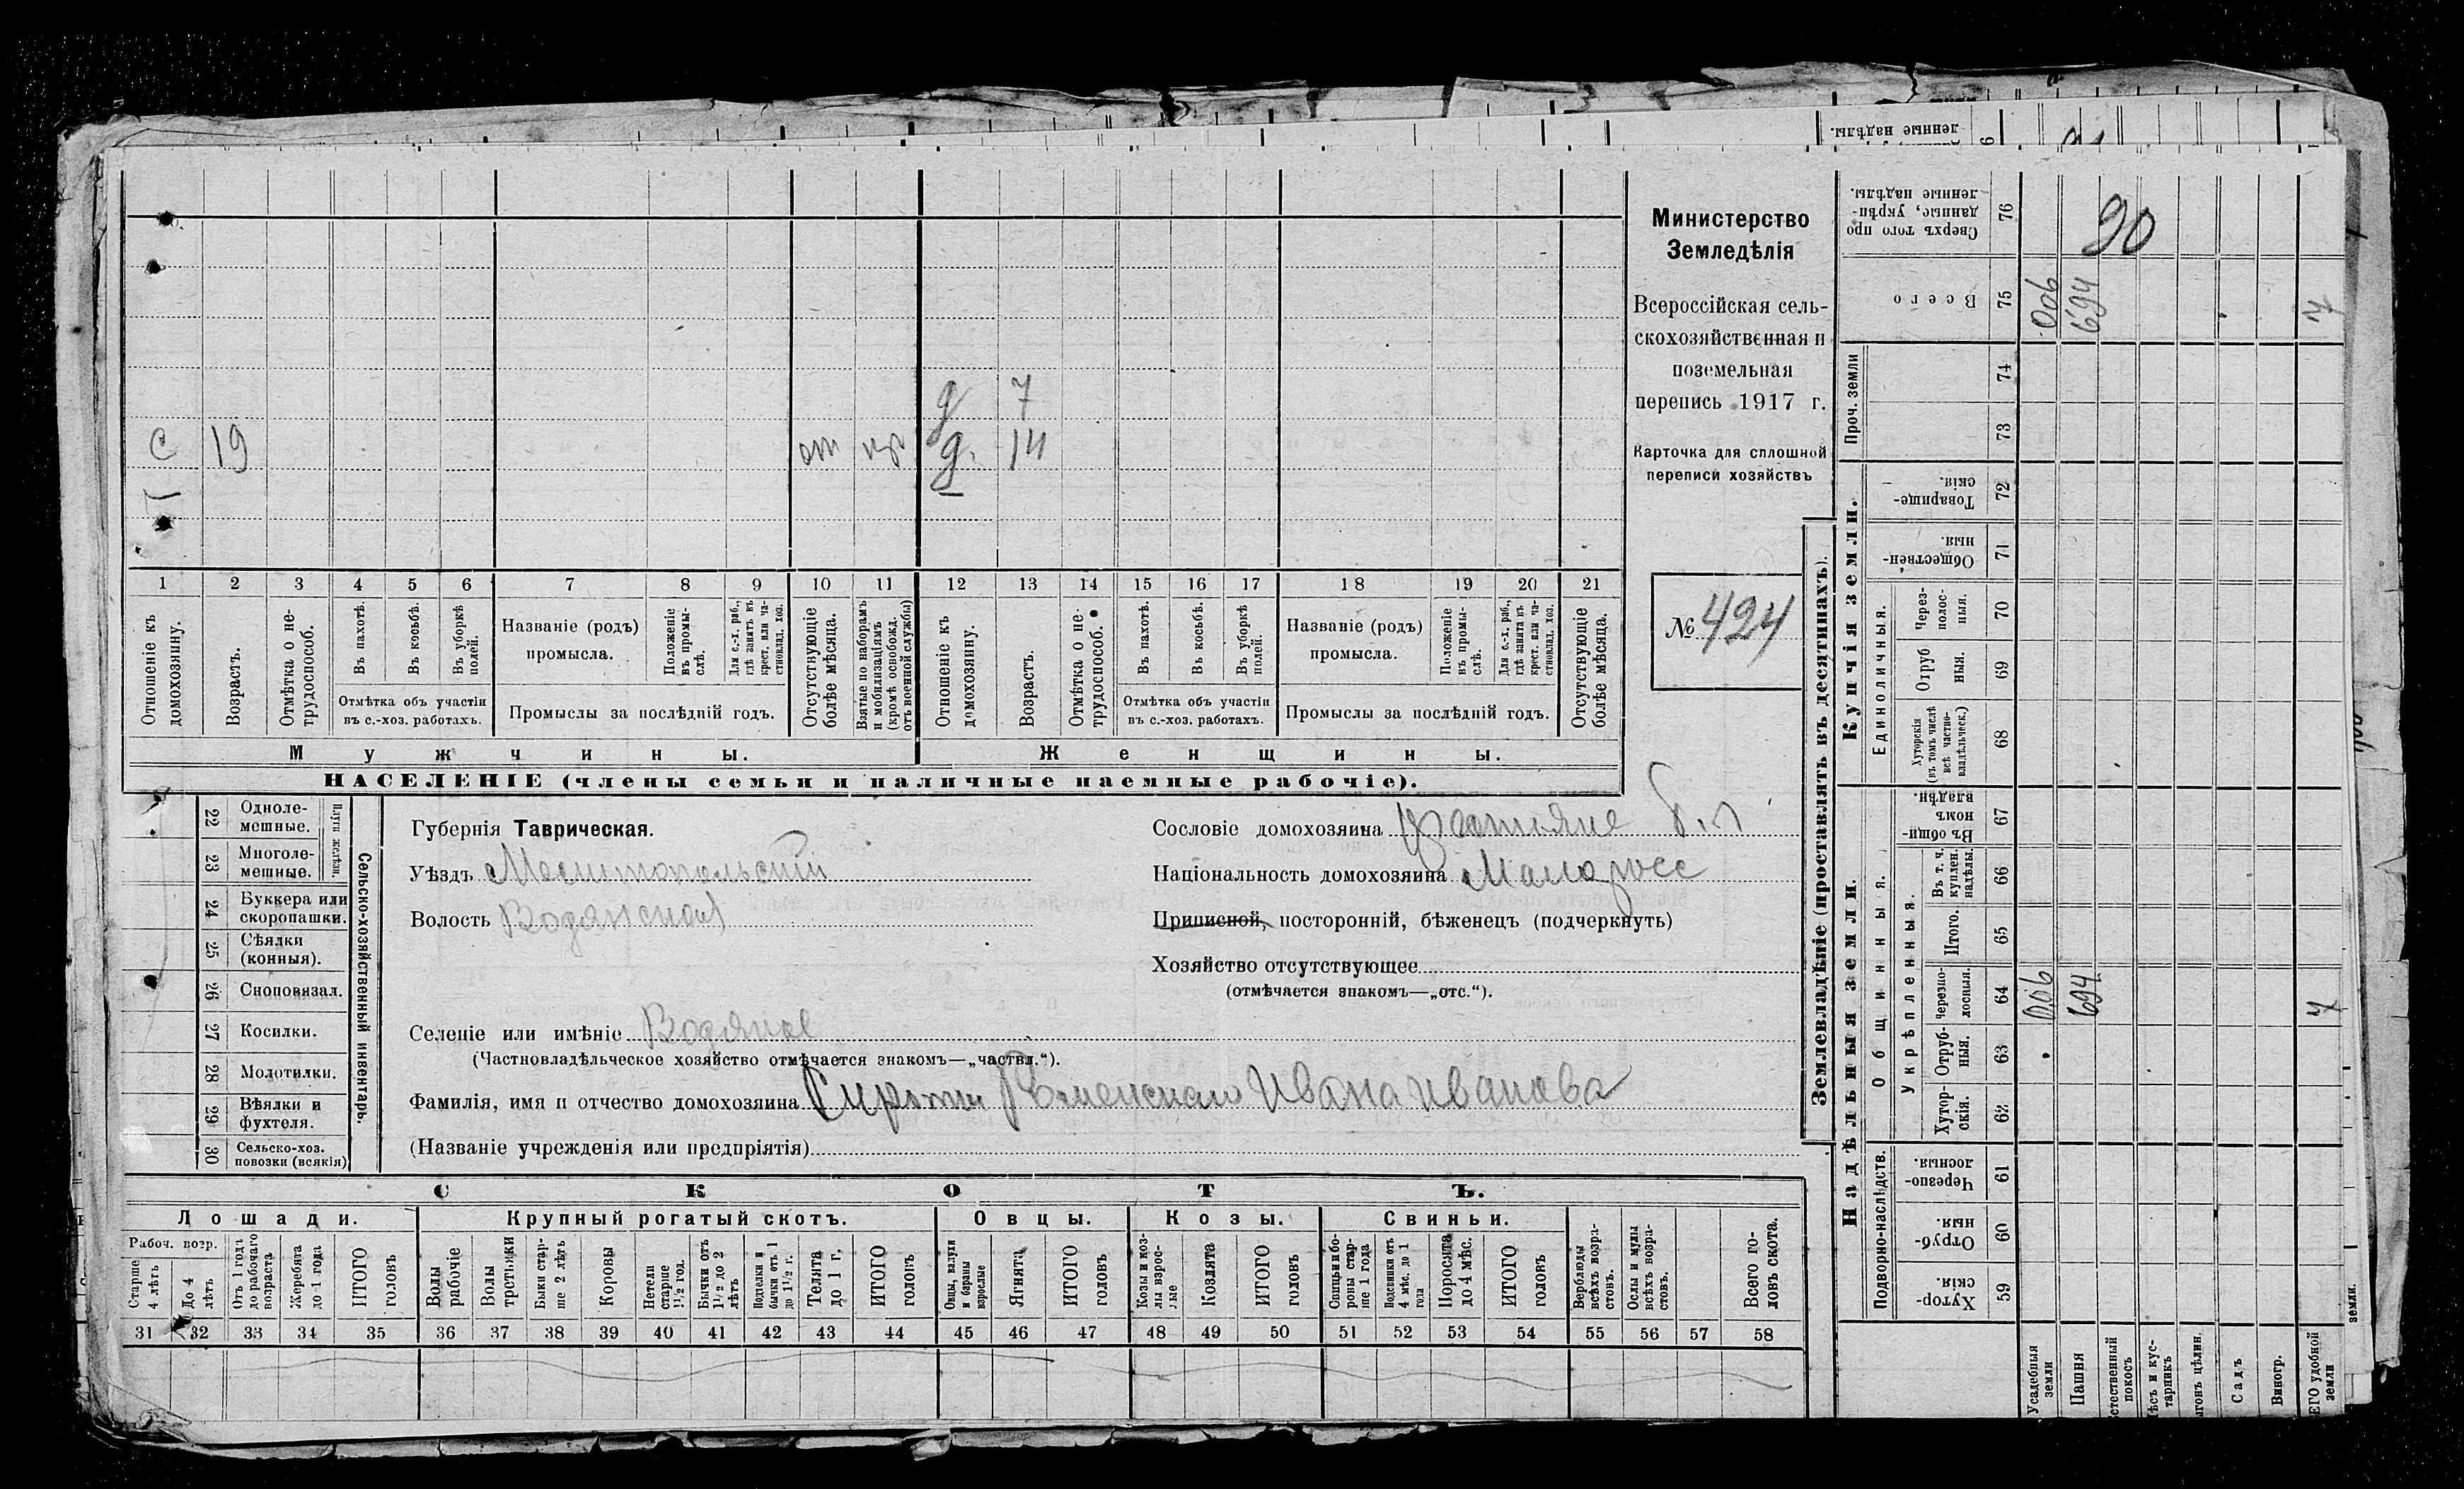 Министерство
Земледѣлія
Всероссійская сель-
скохозяйственная и
поземельная
перепись 1917 г.
Карточка для сплошной
переписи хозяйствъ
№ 424
д 7
С 19 от д. 14
1 2 3 4 5 6 7 8 9 10 11 12 13 14 15 16 17 18 19 20 21
Отношеніе къ домохозяину.
Возрастъ.
Отмѣтка о не-трудоспособ.
Въ пахотѣ.
Въ косьбѣ.
Въ уборкѣ полей.
Отмѣтка объ участіи
въ с.-хоз. работахъ.
Названіе (родъ)
промысла.
Положеніе въ промы-слѣ.
Для с.-х. раб., гдѣ занятъ въ крест. или ча-стновлад. хоз.
Промыслы за послѣдній годъ.
Отсутствующіе болѣе мѣсяца.
Взятые по наборамъ и мобилизаціямъ (кромѣ освобожд. отъ военной службы)
Отношеніе къ домохозяину.
Возрастъ.
Отмѣтка о не-трудоспособ.
Въ пахотѣ.
Въ косьбѣ.
Въ уборкѣ полей.
Отмѣтка объ участіи
въ с.-хоз. работахъ.
Названіе (родъ)
промысла.
Положеніе въ промы-слѣ.
Для с.-х. раб., гдѣ занята въ крест. или ча-стновлад. хоз.
Промыслы за послѣдній годъ.
Отсутствующіе болѣе мѣсяца.
Мужчины.
Женщины.
НАСЕЛЕНІЕ (члены семьи и наличные наемные рабочіе).
22 Одноле-мешные.
23 Многоле-мешные.
Плуги желѣзн.
24 Буккера или скоропашки.
25 Сѣялки (конныя).
26 Сноповязал.
27 Косилки.
28 Молотилки.
29 Вѣялки и фухтеля.
30 Сельско-хоз. повозки (всякія)
Сельско-хозяйственный инвентарь.
Губернія Таврическая.
Уѣздъ Мелитопольскій
Волость Водянская
Селеніе или имѣніе Водяное
(Частновладѣльческое хозяйство отмѣчается знакомъ—„частвл.“).
Фамилія, имя и отчество домохозяина Сироты Роменского Ивана Иванова
(Названіе учрежденія или предпріятія)
Сословіе домохозяина крестьяне
Національность домохозяина Малоросс
Приписной, посторонній, бѣженецъ (подчеркнуть)
Хозяйство отсутствующее
(отмѣчается знакомъ—„отс.“).
СКОТЪ.
Лошади.
Крупный рогатый скотъ.
Овцы.
Козы.
Свиньи.
Рабоч. возр.
Старше 4 лѣтъ
До 4 лѣтъ
Отъ 1 года до рабочаго возраста
Жеребята до 1 года
ИТОГО головъ
Волы рабочіе
Волы третьяки
Быки стар-ше 2 лѣтъ
Коровы
Нетели старше 1½ год.
Бычки отъ 1½ до 2 лѣтъ
Подтелки и бычки отъ 1 до 1½ г.
Телята до 1 г.
ИТОГО головъ
Овцы, валухи и бараны взрослые
Ягнята
ИТОГО головъ
Козы и коз-лы взрос-лые
Козлята
ИТОГО головъ
Свиньи и бо-ровы стар-ше 1 года
Подсвинки отъ 4 мѣс. до 1 года
Поросята до 4 мѣс.
ИТОГО головъ
Верблюды всѣхъ возра-стовъ.
Ослы и мулы всѣхъ возра-стовъ.
Всего го-ловъ скота.
31 32 33 34 35 36 37 38 39 40 41 42 43 44 45 46 47 48 49 50 51 52 53 54 55 56 57 58
Землевладѣніе (проставлять въ десятинахъ).
Сверхъ того про-данные, укрѣп-ленные надѣлы. 76 90
Всего 75 006 694 7
Проч. земли 74 73
Купчія земли.
Товарище-скія. 72
Обществен-ныя. 71
Единоличныя.
Через-полос-ныя. 70
Отруб ныя. 69
Хуторскія (въ томъ числѣ всѣ частно-владѣльческ.) 68
Надѣльныя земли.
Общинныя.
Въ общи-номъ владѣн. 67
Укрѣпленныя.
Въ т. ч. куплен. надѣлы. 66
Итого. 65
черезпо-лосныя. 64 006 694 7
Отруб-ныя. 63
Хутор-скія. 62
Подворно-наслѣдств.
Черезпо-лосныя. 61
Отруб-ныя. 60
Хутор-скія. 59
Усадебныя земли
Пашня
стественный покосъ
ѣсъ и кус-тарникъ
ыгонъ цѣлин.
Садъ
Виногр.
ЕГО удобной земли
земли.